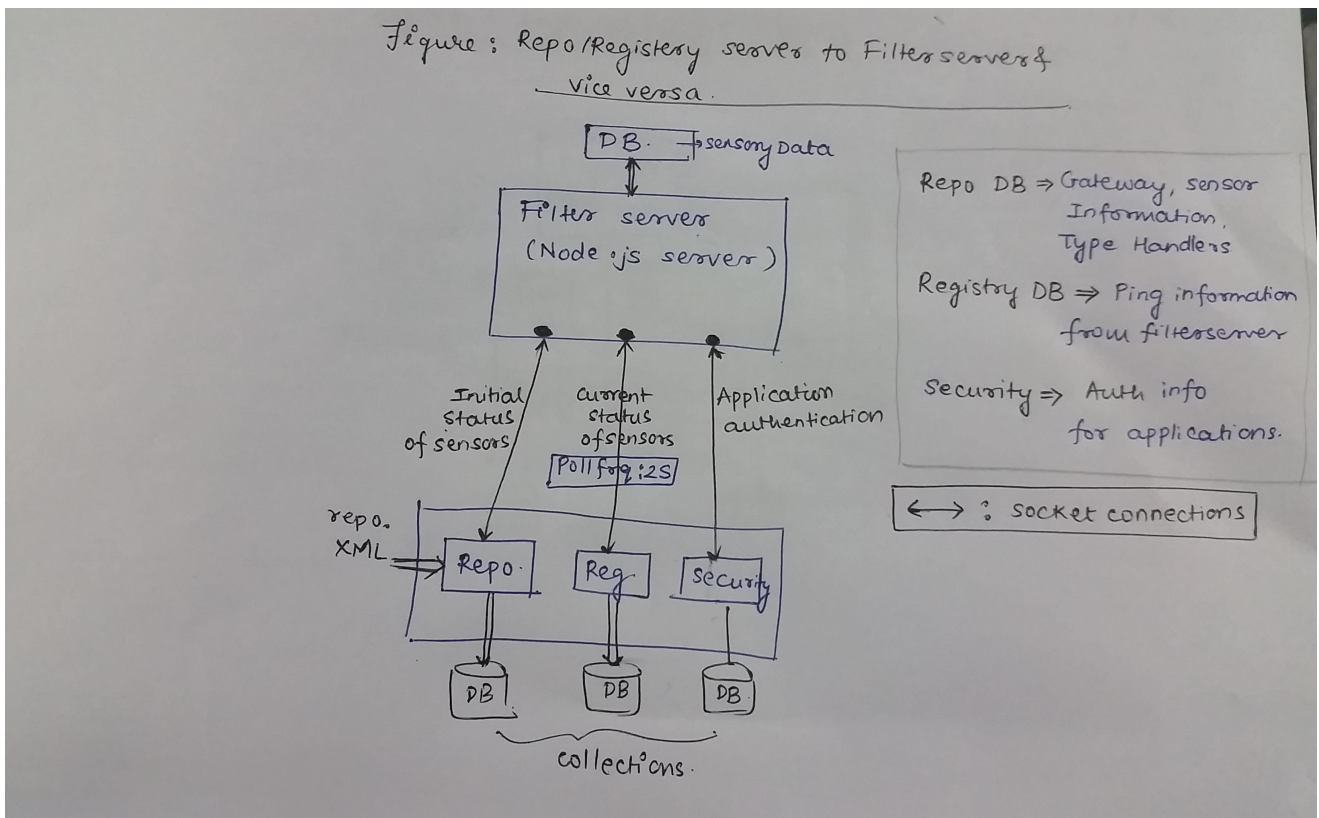 Figure : Repo/Registery server to Filterserver &
vice versa.
DB. → sensory Data
Filter server
(Node.js server)
Initial
status
of sensors
current
status
of sensors
Poll frq : 2S
Application
authentication
repo.
XML
Repo.
Reg.
Security
DB
DB
DB
collections.
Repo DB ⇒ Gateway, sensor
Information,
Type Handlers
Registry DB ⇒ Ping information
from filterserver
Security ⇒ Auth info
for applications.
⟷ : socket connections